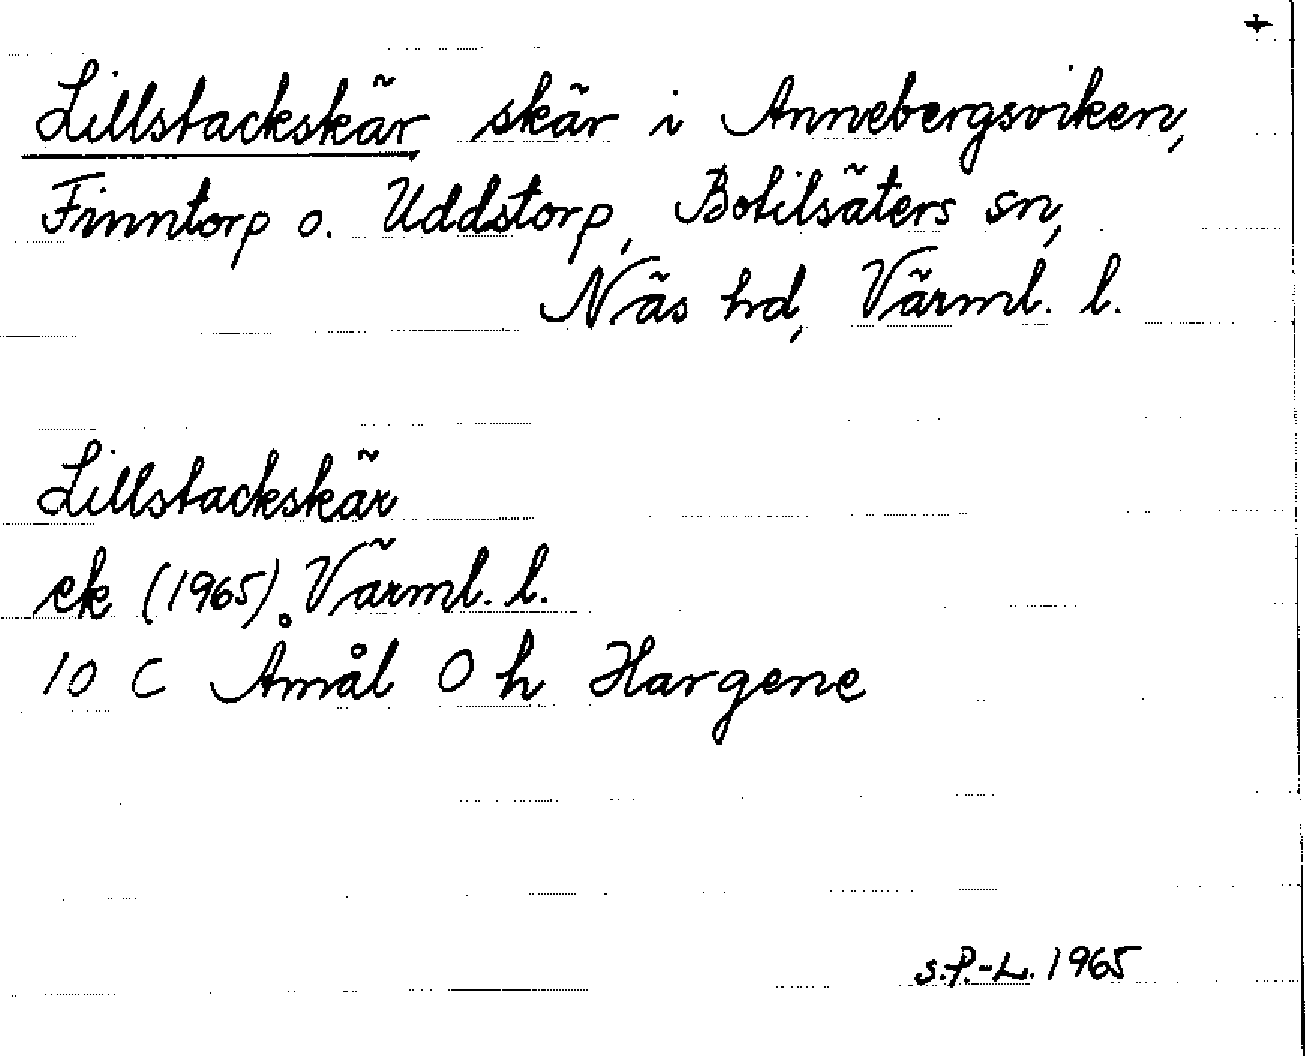 +
Lillstackskär, skär i Annebergsviken,
Finntorp o. Uddstorp, Botilsäters sn,
Näs hd, Värml. l.
Lillstackskär
ek (1965). Värml. l.
10 C Åmål O h Hargene
S.P.-L. 1965